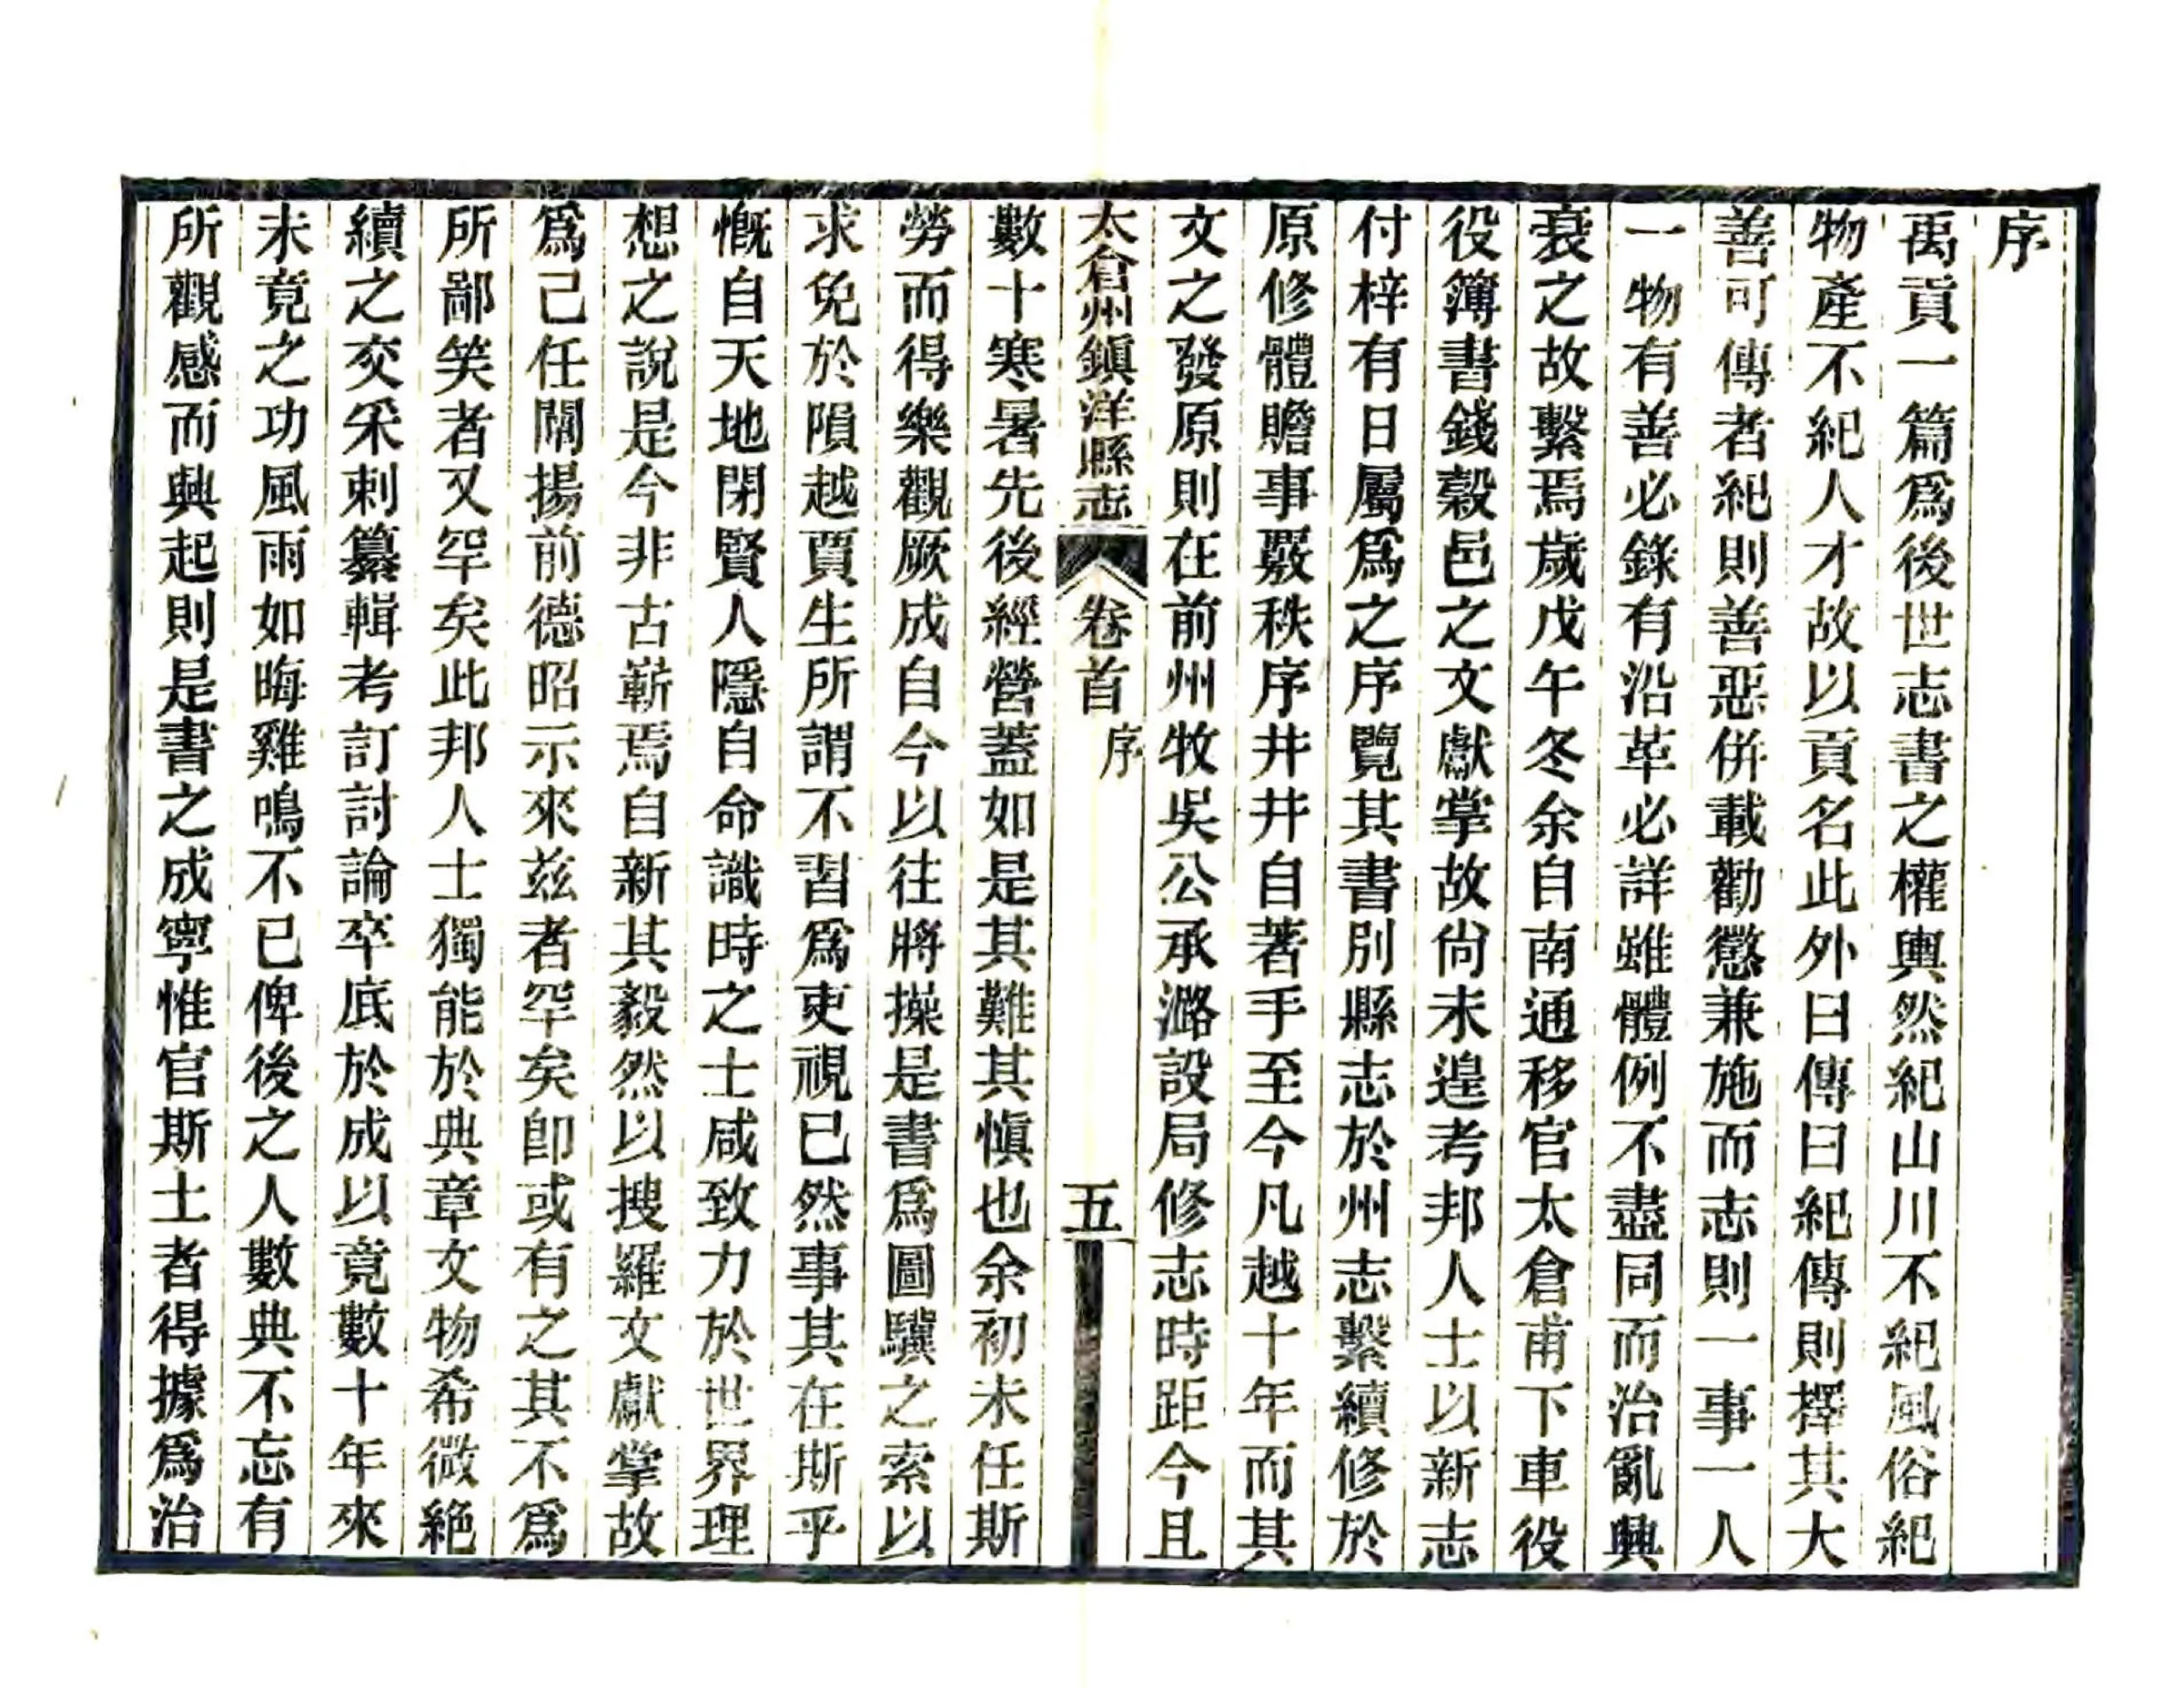 序
禹貢一篇爲後世志書之權輿然紀山川不紀風俗紀
物產不紀人才故以貢名此外曰傳曰紀傳則擇其大
善可傳者紀則善惡併載勸懲兼施而志則一事一人
一物有善必錄有沿革必詳雖體例不盡同而治亂興
衰之故繫焉歲戊午冬余自南通移官太倉甫下車役
役簿書錢穀邑之文獻掌故尙未遑考邦人士以新志
付梓有日屬爲之序覽其書別縣志於州志繫續修於
原修體贍事覈秩序井井自著手至今凡越十年而其
文之發原則在前州牧吳公承潞設局修志時距今且
太倉州鎭洋縣志 卷首 序 五
數十寒暑先後經營蓋如是其難其愼也余初未任斯
勞而得樂觀厥成自今以往將操是書爲圖驥之索以
求免於隕越賈生所謂不習爲吏視已然事其在斯乎
慨自天地閉賢人隱自命識時之士咸致力於世界理
想之說是今非古嶄焉自新其毅然以搜羅文獻掌故
爲己任闡揚前德昭示來茲者罕矣卽或有之其不爲
所鄙笑者又罕矣此邦人士獨能於典章文物希微絕
續之交采刺纂輯考訂討論卒底於成以竟數十年來
未竟之功風雨如晦雞鳴不已俾後之人數典不忘有
所觀感而興起則是書之成寧惟官斯土者得據爲治